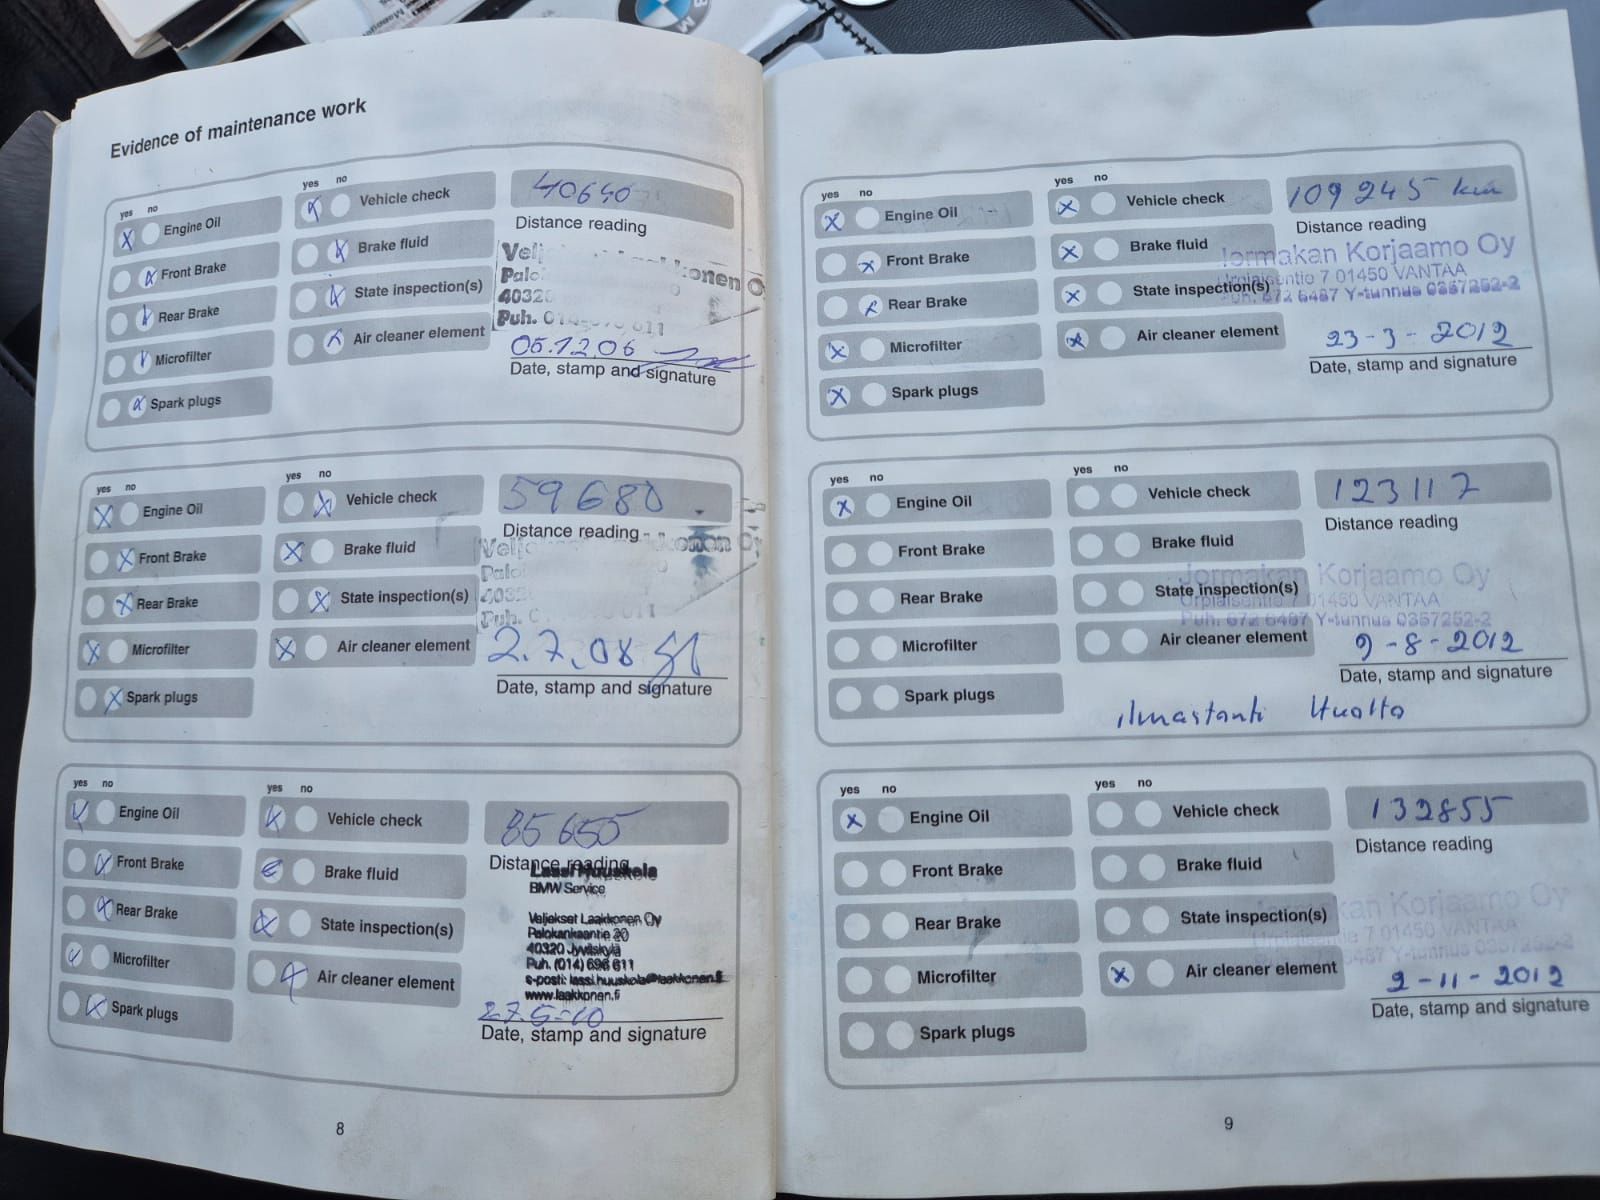 Evidence of maintenance work
yes no
Engine Oil
Front Brake
Rear Brake
Microfilter
Spark plugs
yes no
Vehicle check
Brake fluid
State inspection(s)
Air cleaner element
40640
Distance reading
Palo
Puh. 014
05.12.06
Date, stamp and signature
yes no
Engine Oil
Front Brake
Rear Brake
Microfilter
Spark plugs
yes no
Vehicle check
Brake fluid
State inspection(s)
Air cleaner element
59680
Distance reading
2.7.08
Date, stamp and signature
yes no
Engine Oil
Front Brake
Rear Brake
Microfilter
Spark plugs
yes no
Vehicle check
Brake fluid
State inspection(s)
Air cleaner element
85655
Distance reading
Lassi Huuskola
BMW Service
Veljekset Laakkonen Oy
Palokankaantie 20
40320 Jyväskylä
Puh. (014) 696 611
s-posti: lassi.huuskola@laakkonen.fi
www.laakkonen.fi
27.5-10
Date, stamp and signature
8
yes no
Engine Oil
Front Brake
Rear Brake
Microfilter
Spark plugs
yes no
Vehicle check
Brake fluid
State inspection(s)
Air cleaner element
109245 km
Distance reading
Jormakan Korjaamo Oy
Urpiaisentie 7 01450 VANTAA
Puh. 872 6487 Y-tunnus 0357252-2
23-3-2012
Date, stamp and signature
yes no
Engine Oil
Front Brake
Rear Brake
Microfilter
Spark plugs
yes no
Vehicle check
Brake fluid
State inspection(s)
Air cleaner element
123117
Distance reading
Jormakan Korjaamo Oy
Urpiaisentie 7 01450 VANTAA
Puh. 872 6487 Y-tunnus 0357252-2
9-8-2012
Date, stamp and signature
ilmastanti Huolto
yes no
Engine Oil
Front Brake
Rear Brake
Microfilter
Spark plugs
yes no
Vehicle check
Brake fluid
State inspection(s)
Air cleaner element
132855
Distance reading
Korjaamo Oy
7 01450 VANTAA
2-11-2012
Date, stamp and signature
9